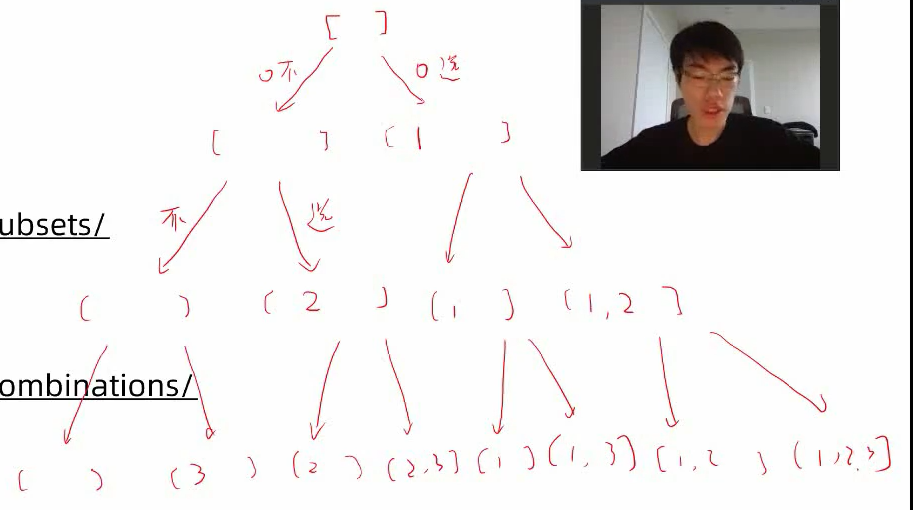 [ ]
0不 0选
[ ] [1 ]
不 选
ubsets/
[ ] [2 ] [1 ] [1,2 ]
ombinations/
[ ] [3 ] [2 ] [2,3] [1 ] [1,3] [1,2 ] [1,2,3]